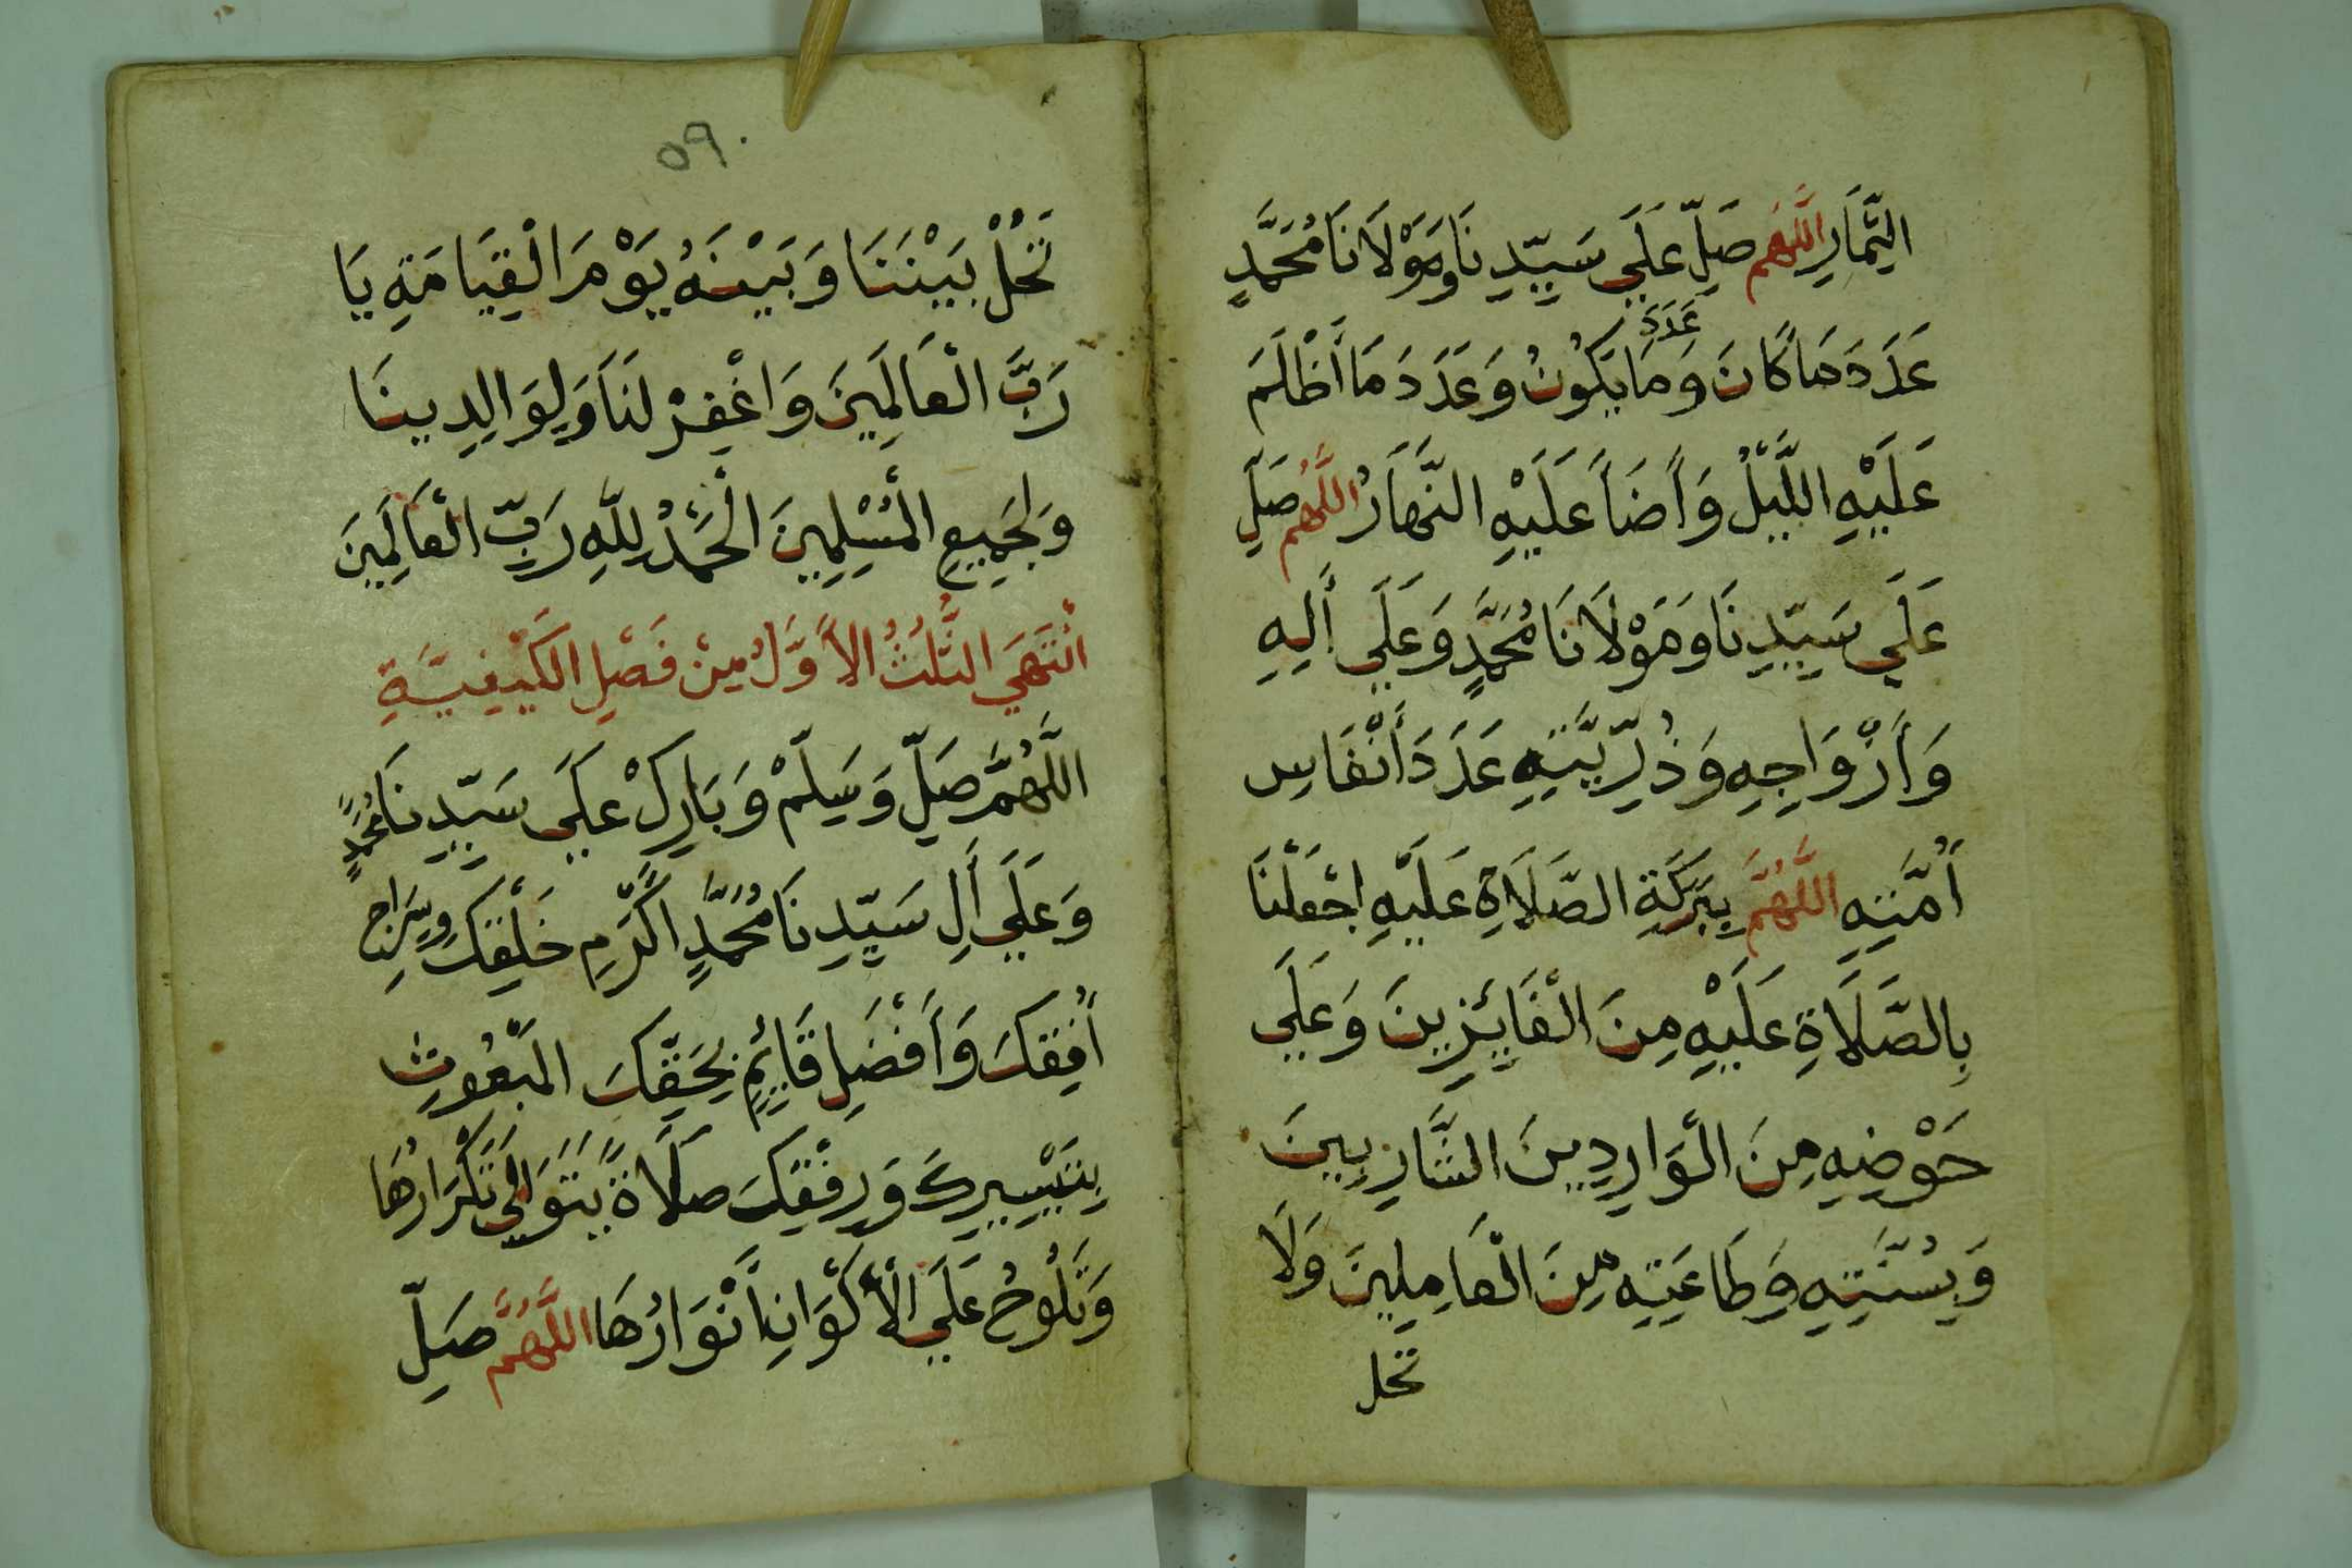 الثِّمَارِ اللَّهُمَّ صَلِّ عَلَي سَيِّدِنَا وَمَوْلَانَا مُحَمَّدٍ
عَدَدَ مَا كَانَ وَعَدَدَ مَا يَكُونُ وَعَدَدَ مَا أَظْلَمَ
عَلَيْهِ اللَّيْلُ وَأَضَاَ عَلَيْهِ النَّهَارُ اللَّهُمَّ صَلِّ
عَلَي سَيِّدِنَا وَمَوْلَانَا مُحَمَّدٍ وَعَلَي أَلِهِ
وَأَزْوَاجِهِ وَذُرِّيَّتِهِ عَدَدَ أَنْفَاسِ
أُمَّتِهِ اللَّهُمَّ بِبَرَكَةِ الصَّلَاةِ عَلَيْهِ اجْعَلْنَا
بِالصَّلَاةِ عَلَيْهِ مِنَ الْفَائِزِينَ وَعَلَي
حَوْضِهِ مِنَ الْوَارِدِينَ الشَّارِبِينَ
وَبِسُنَّتِهِ وَطَاعَتِهِ مِنَ الْعَامِلِينَ وَلَا
تحل
٥٩
تَحُلْ بَيْنَنَا وَبَيْنَهُ يَوْمَ الْقِيَامَةِ يَا
رَبَّ الْعَالَمِينَ وَاغْفِرْ لَنَا وَلِوَالِدِينَا
وَلِجَمِيعِ الْمُسْلِمِينَ الْحَمْدُ لِلَّهِ رَبِّ الْعَالَمِينَ
انْتَهَي الثُّلُثُ الْأَوَّلُ مِنْ فَصْلِ الْكَيْفِيَّةِ
اللَّهُمَّ صَلِّ وَسَلِّمْ وَبَارِكْ عَلَي سَيِّدِنَا مُحَمَّدٍ
وَعَلَي أَلِ سَيِّدِنَا مُحَمَّدٍ اكْرَمِ خَلْقِكَ وَسِرَاجِ
أُفُقِكَ وَأَفْضَلِ قَائِمٍ بِحَقِّكَ الْمَبْعُوثِ
بِتَيْسِيرِكَ وَرِفْقِكَ صَلَاةً يَتَوَالَي تَكْرَارُهَا
وَتَلُوحُ عَلَي الْأَكْوَانِ أَنْوَارُهَا اللَّهُمَّ صَلِّ